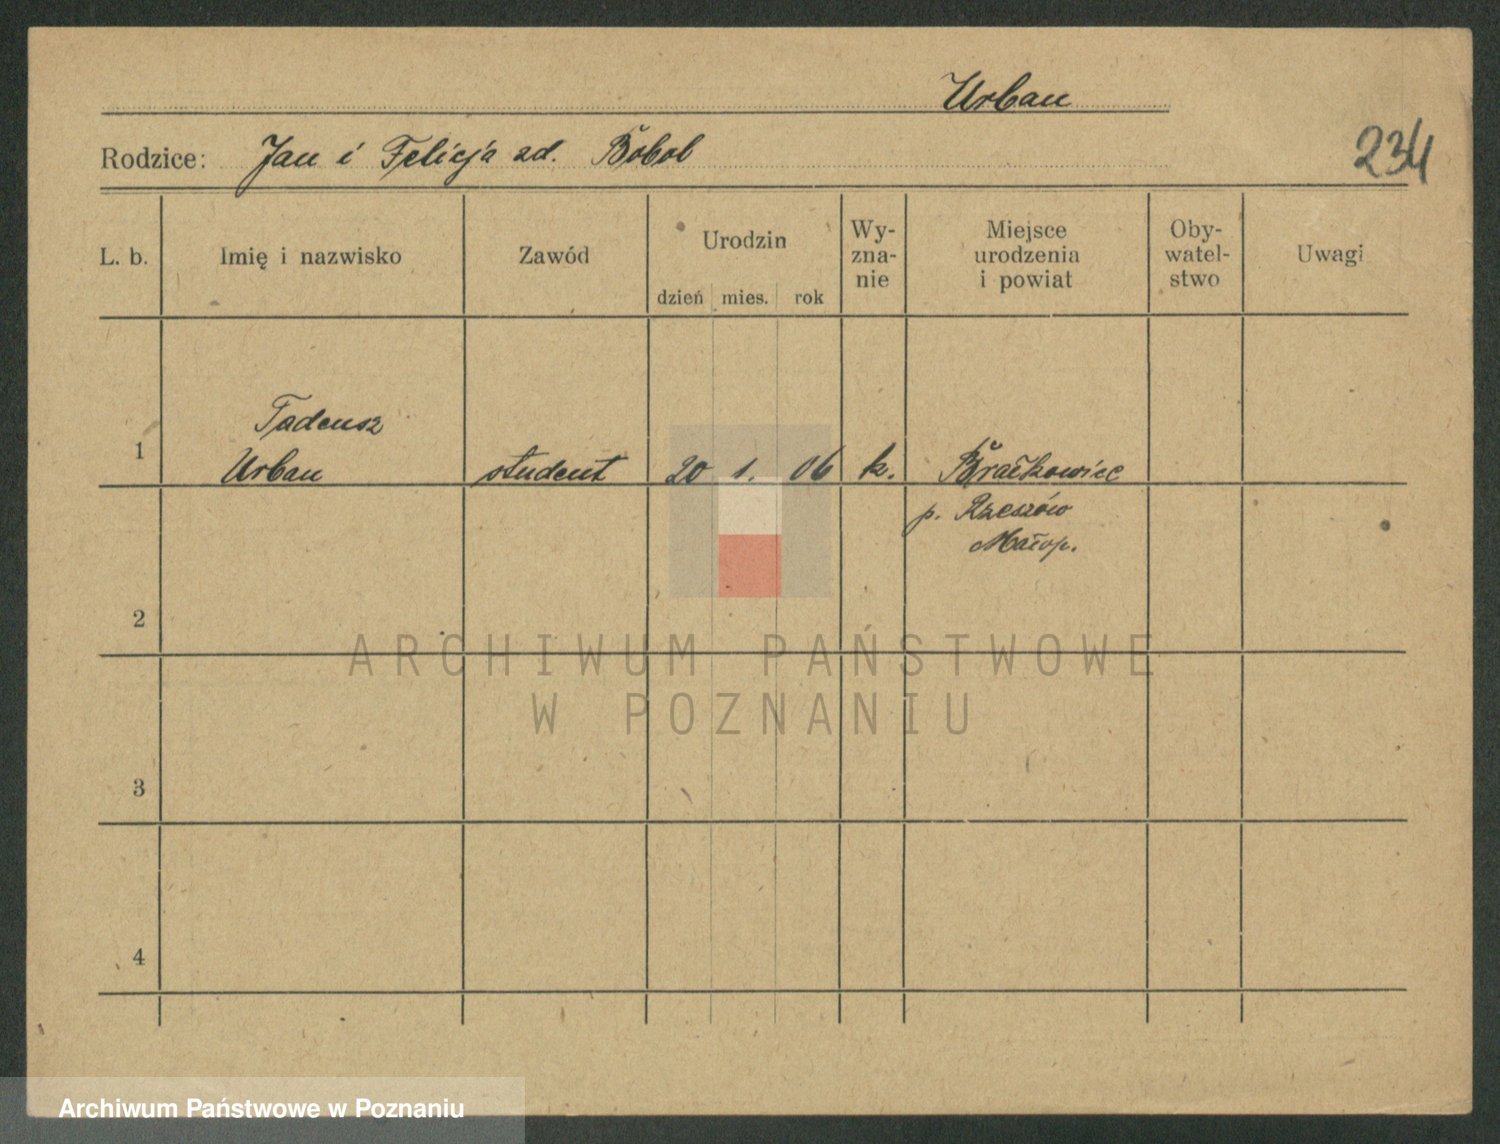 Urban
Rodzice: Jan i Felicja zd. Bobol
234
L. b. Imię i nazwisko Zawód Urodzin dzień mies. rok Wy- zna- nie Miejsce urodzenia i powiat Oby- watel- stwo Uwagi
Tadeusz
1 Urban student 20 1. 06 k.
p. Rzeszów
Małop.
2
ARCHIWUM PAŃSTWOWE
W POZNANIU
3
4
Archiwum Państwowe w Poznaniu